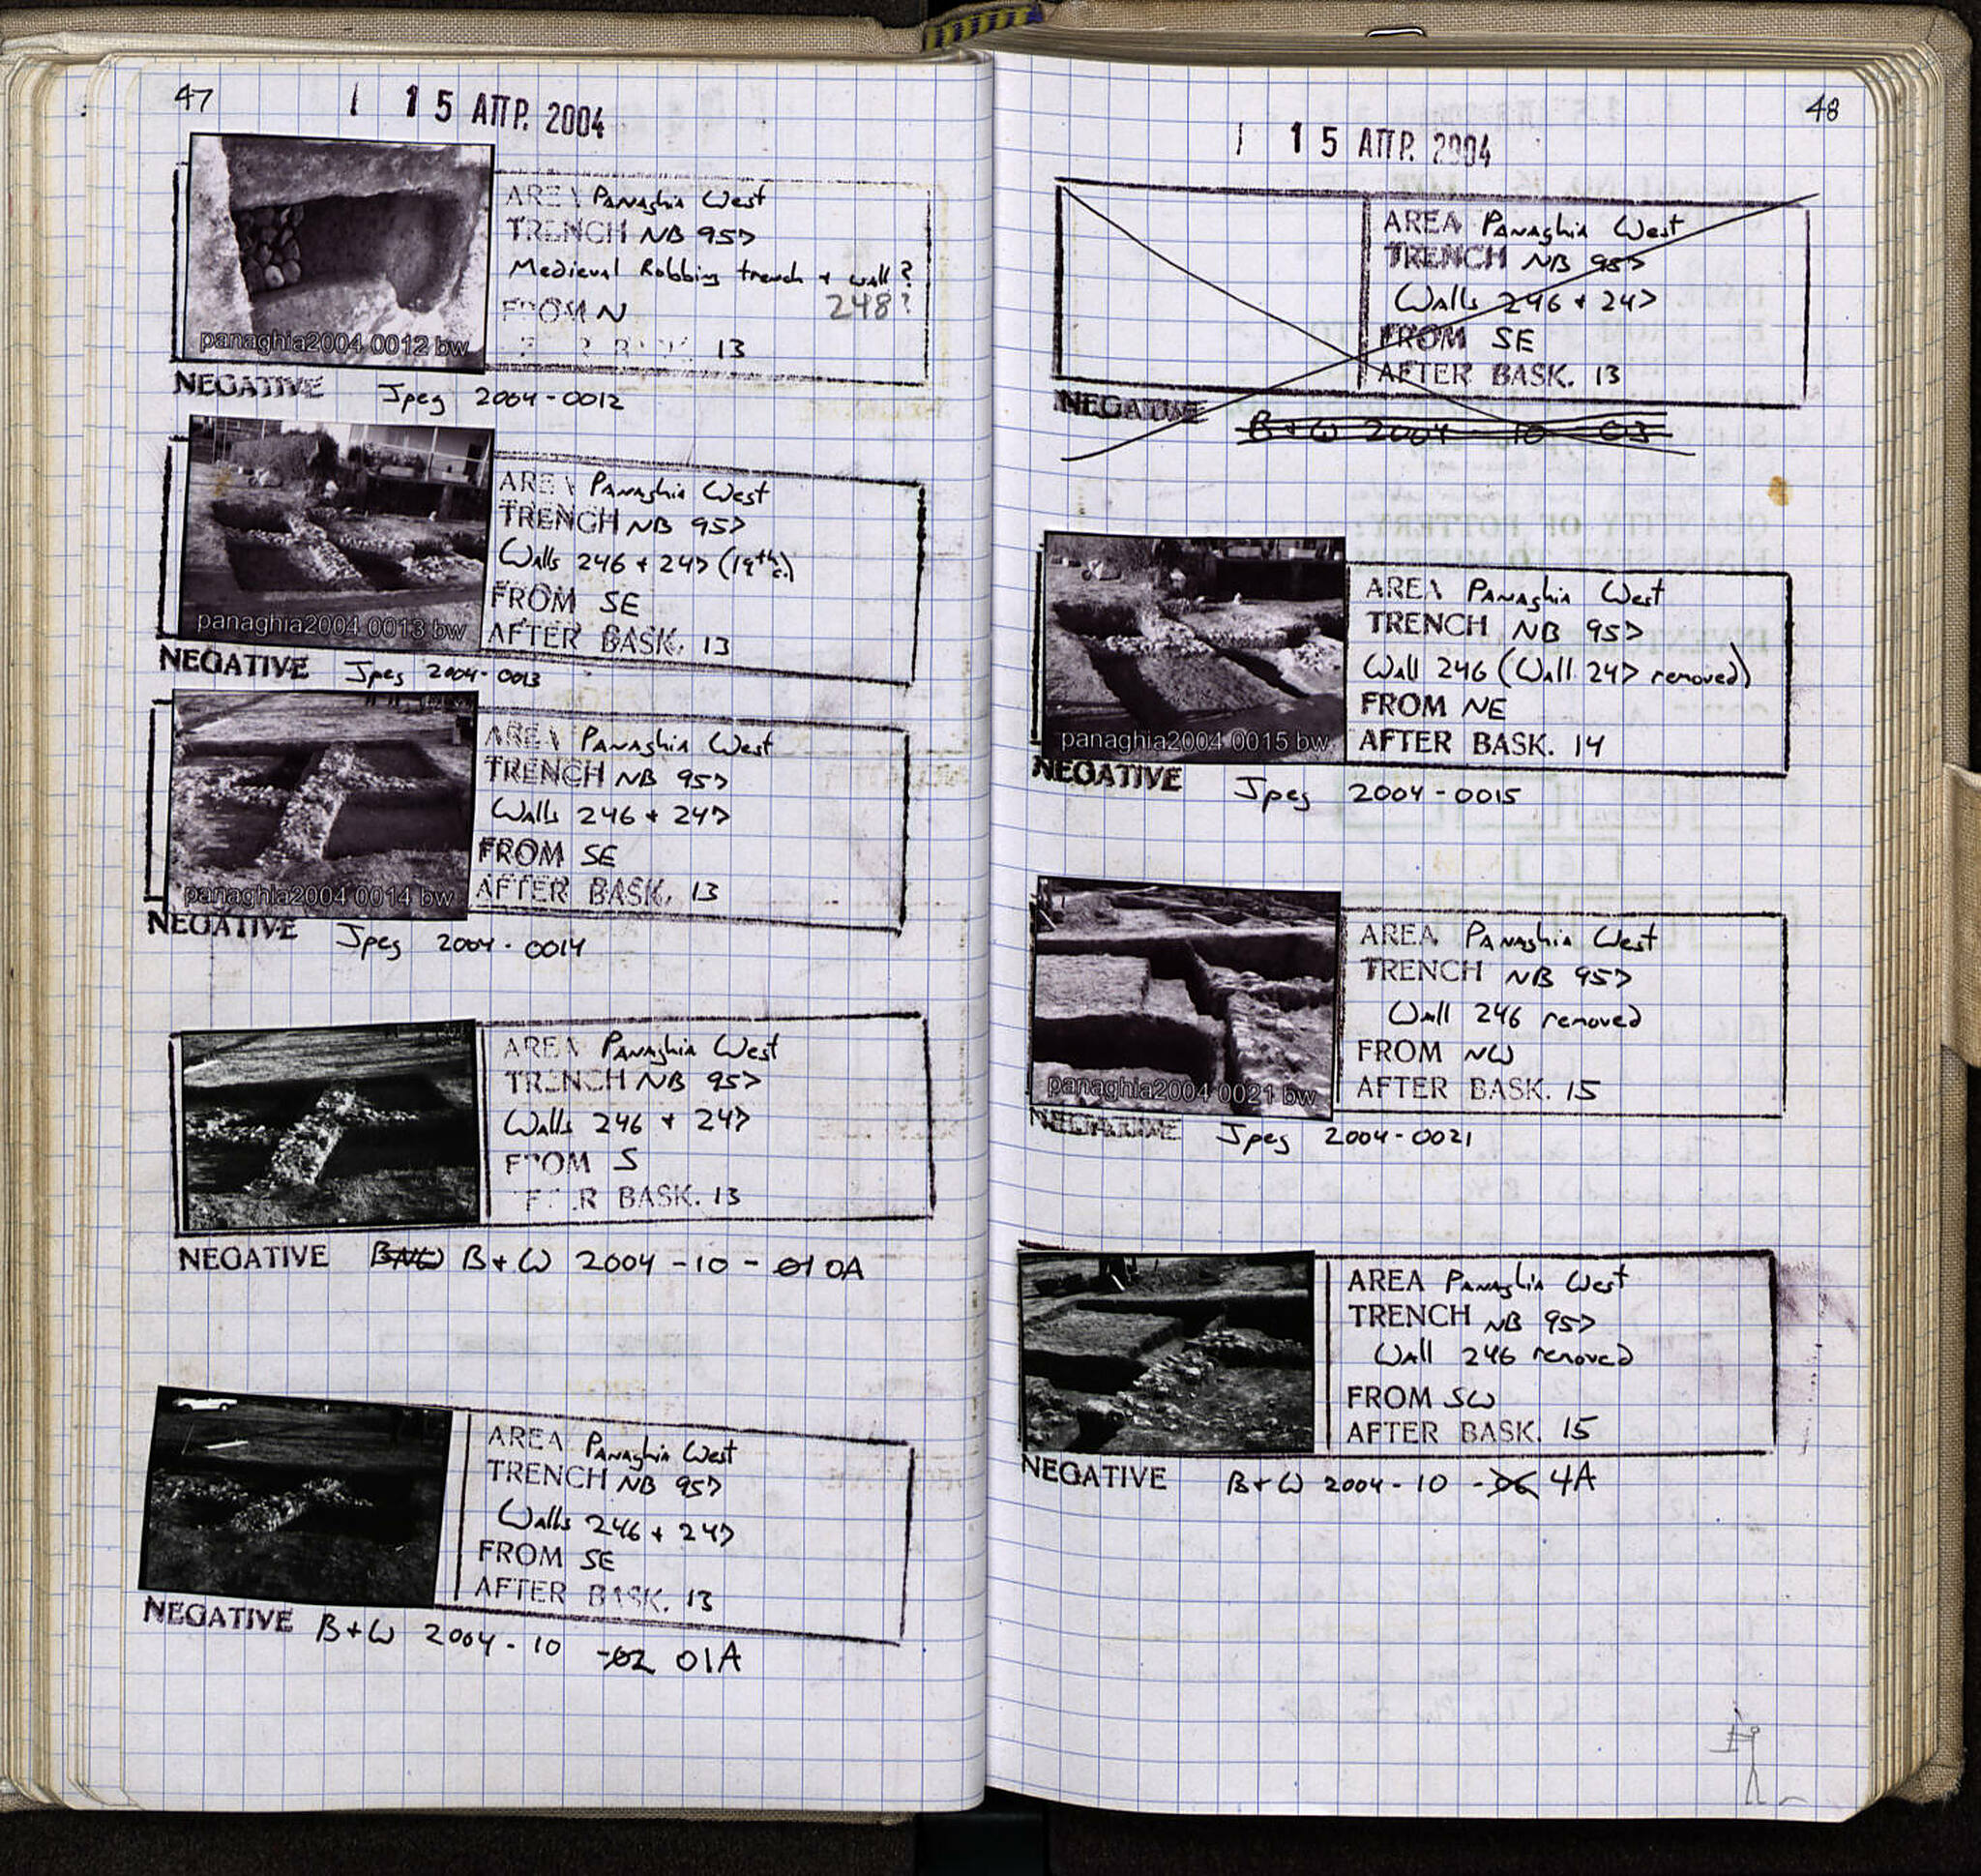 47
1 5 ΑΠΡ. 2004
AREA Panaghia West
TRENCH NB 957
Medieval Robbing trench + wall?
248?
FROM N
13
panaghia2004 0012 bw
NEGATIVE Jpeg 2004-0012
AREA Panaghia West
TRENCH NB 957
Walls 246 + 247 (19th c.)
FROM SE
AFTER BASK. 13
panaghia2004 0013 bw
NEGATIVE Jpeg 2004-0013
AREA Panaghia West
TRENCH NB 957
Walls 246 + 247
FROM SE
AFTER BASK. 13
panaghia2004 0014 bw
NEGATIVE Jpeg 2004-0014
AREA Panaghia West
TRENCH NB 957
Walls 246 + 247
FROM S
AFTER BASK. 13
NEGATIVE B+W 2004-10-01 0A
AREA Panaghia West
TRENCH NB 957
Walls 246 + 247
FROM SE
AFTER BASK. 13
NEGATIVE B+W 2004-10 -02 01A
48
1 5 ΑΠΡ. 2004
AREA Panaghia West
TRENCH NB 957
Walls 246 + 247
FROM SE
AFTER BASK. 13
NEGATIVE B+W 2004 - 10 - 03
AREA Panaghia West
TRENCH NB 957
Wall 246 (Wall 247 removed)
FROM NE
AFTER BASK. 14
panaghia2004 0015 bw
NEGATIVE Jpeg 2004-0015
AREA Panaghia West
TRENCH NB 957
Wall 246 removed
FROM NW
AFTER BASK. 15
panaghia2004 0021 bw
NEGATIVE Jpeg 2004-0021
AREA Panaghia West
TRENCH NB 957
Wall 246 removed
FROM SW
AFTER BASK. 15
NEGATIVE B+W 2004-10 -06 4A